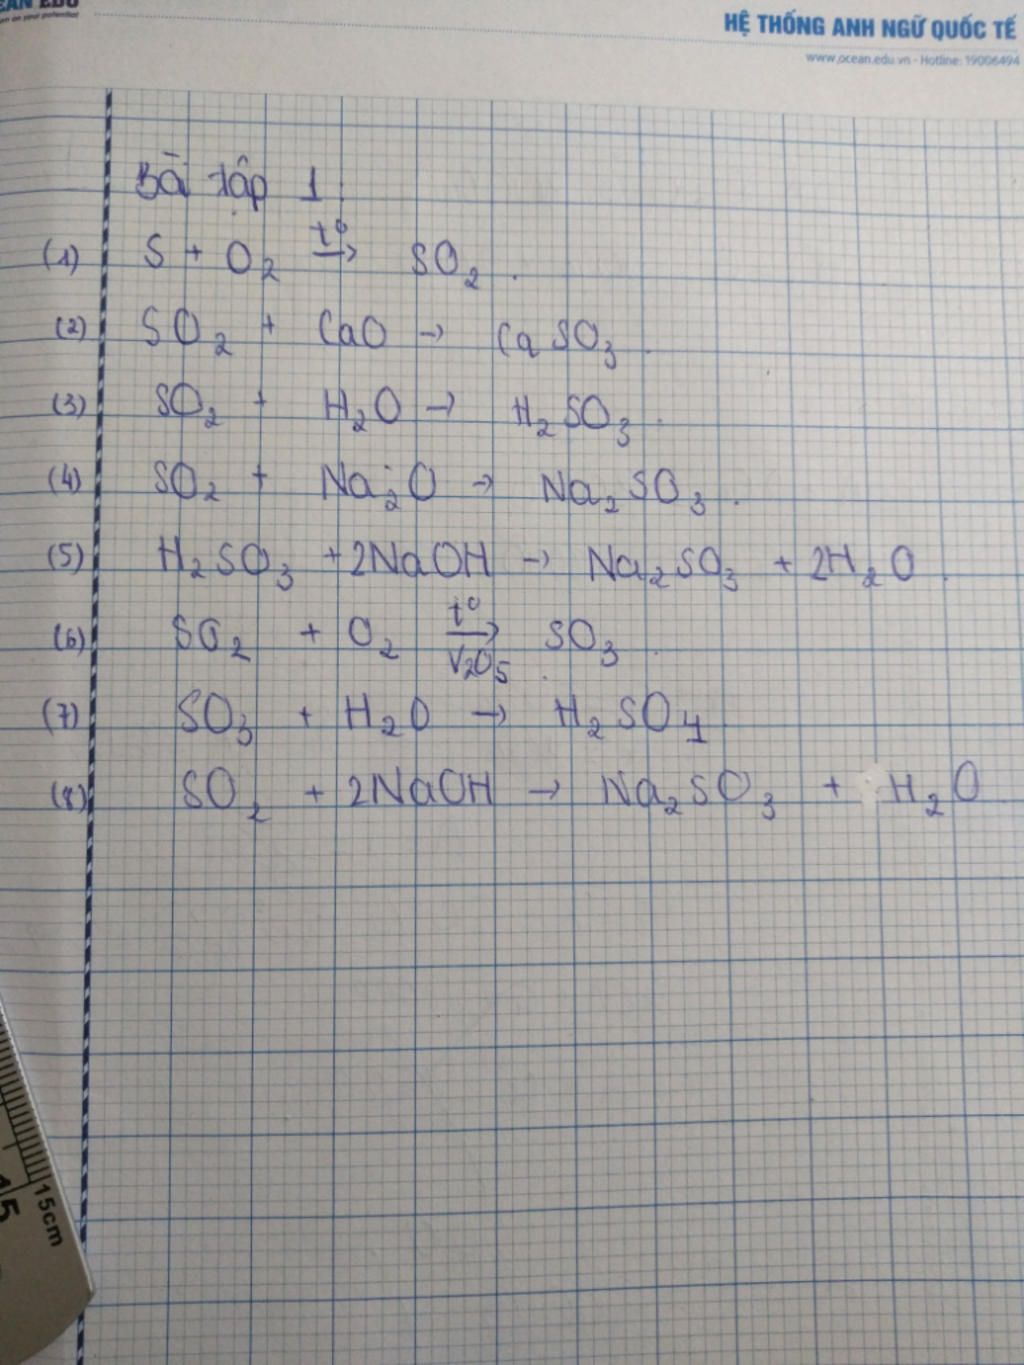 EAN EDU
HỆ THỐNG ANH NGỮ QUỐC TẾ
www.ocean.edu.vn - Hotline: 19006494
Bài tập 1
(1) S + O₂ t⁰→ SO₂.
(2) SO₂ + CaO → CaSO₃.
(3) SO₂ + H₂O → H₂SO₃.
(4) SO₂ + Na₂O → Na₂SO₃.
(5) H₂SO₃ + 2NaOH → Na₂SO₃ + 2H₂O.
(6) SO₂ + O₂ t⁰→ V₂O₅ SO₃.
(7) SO₃ + H₂O → H₂SO₄
(8) SO₂ + 2NaOH → Na₂SO₃ + H₂O
15
15cm